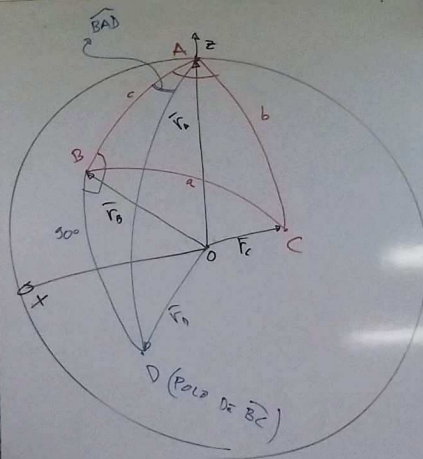 BAD
A
z
c
r̄A
b
B
a
r̄B
90°
O
r̄C
C
X
r̄D
D (POLO DE BC)